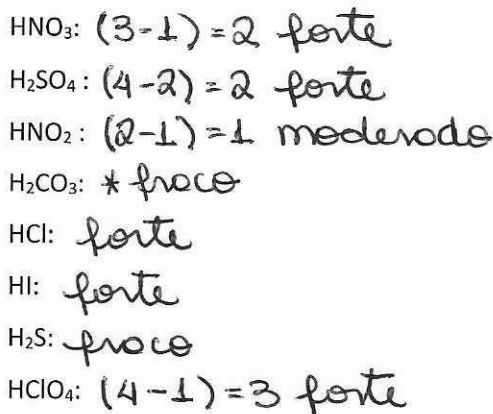 HNO₃: (3-1)=2 forte
H₂SO₄: (4-2)=2 forte
HNO₂: (2-1)=1 moderado
H₂CO₃: * fraco
HCl: forte
HI: forte
H₂S: fraco
HClO₄: (4-1)=3 forte